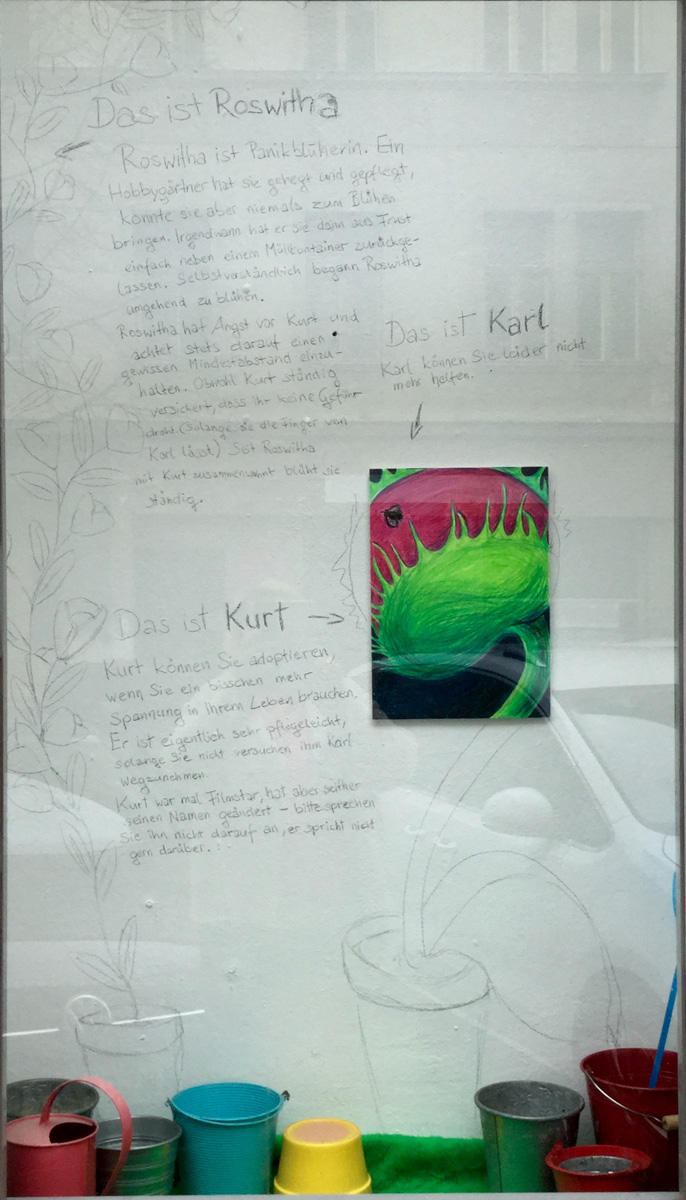 Das ist Roswitha
Roswitha ist Panikblüherin. Ein
Hobbygärtner hat sie gehegt und gepflegt,
konnte sie aber niemals zum Blühen
bringen. Irgendwann hat er sie dann aus Frust
einfach neben einem Müllcontainer zurückge-
lassen. Selbstverständlich begann Roswitha
umgehend zu blühen.
Roswitha hat Angst vor Kurt und
achtet stets darauf einen
gewissen Mindestabstand einzu-
halten. Obwohl Kurt ständig
versichert, dass ihr keine Gefahr
droht. (Solange sie die Finger von
Karl lässt) Seit Roswitha
mit Kurt zusammenwohnt blüht sie
ständig.
Das ist Karl
Karl können Sie leider nicht
mehr helfen.
Das ist Kurt
Kurt können Sie adoptieren,
wenn Sie ein bisschen mehr
Spannung in Ihrem Leben brauchen.
Er ist eigentlich sehr pflegeleicht,
solange sie nicht versuchen ihm Karl
wegzunehmen.
Kurt war mal Filmstar, hat aber seither
seinen Namen geändert – bitte sprechen
Sie ihn nicht darauf an, er spricht nicht
gern darüber...